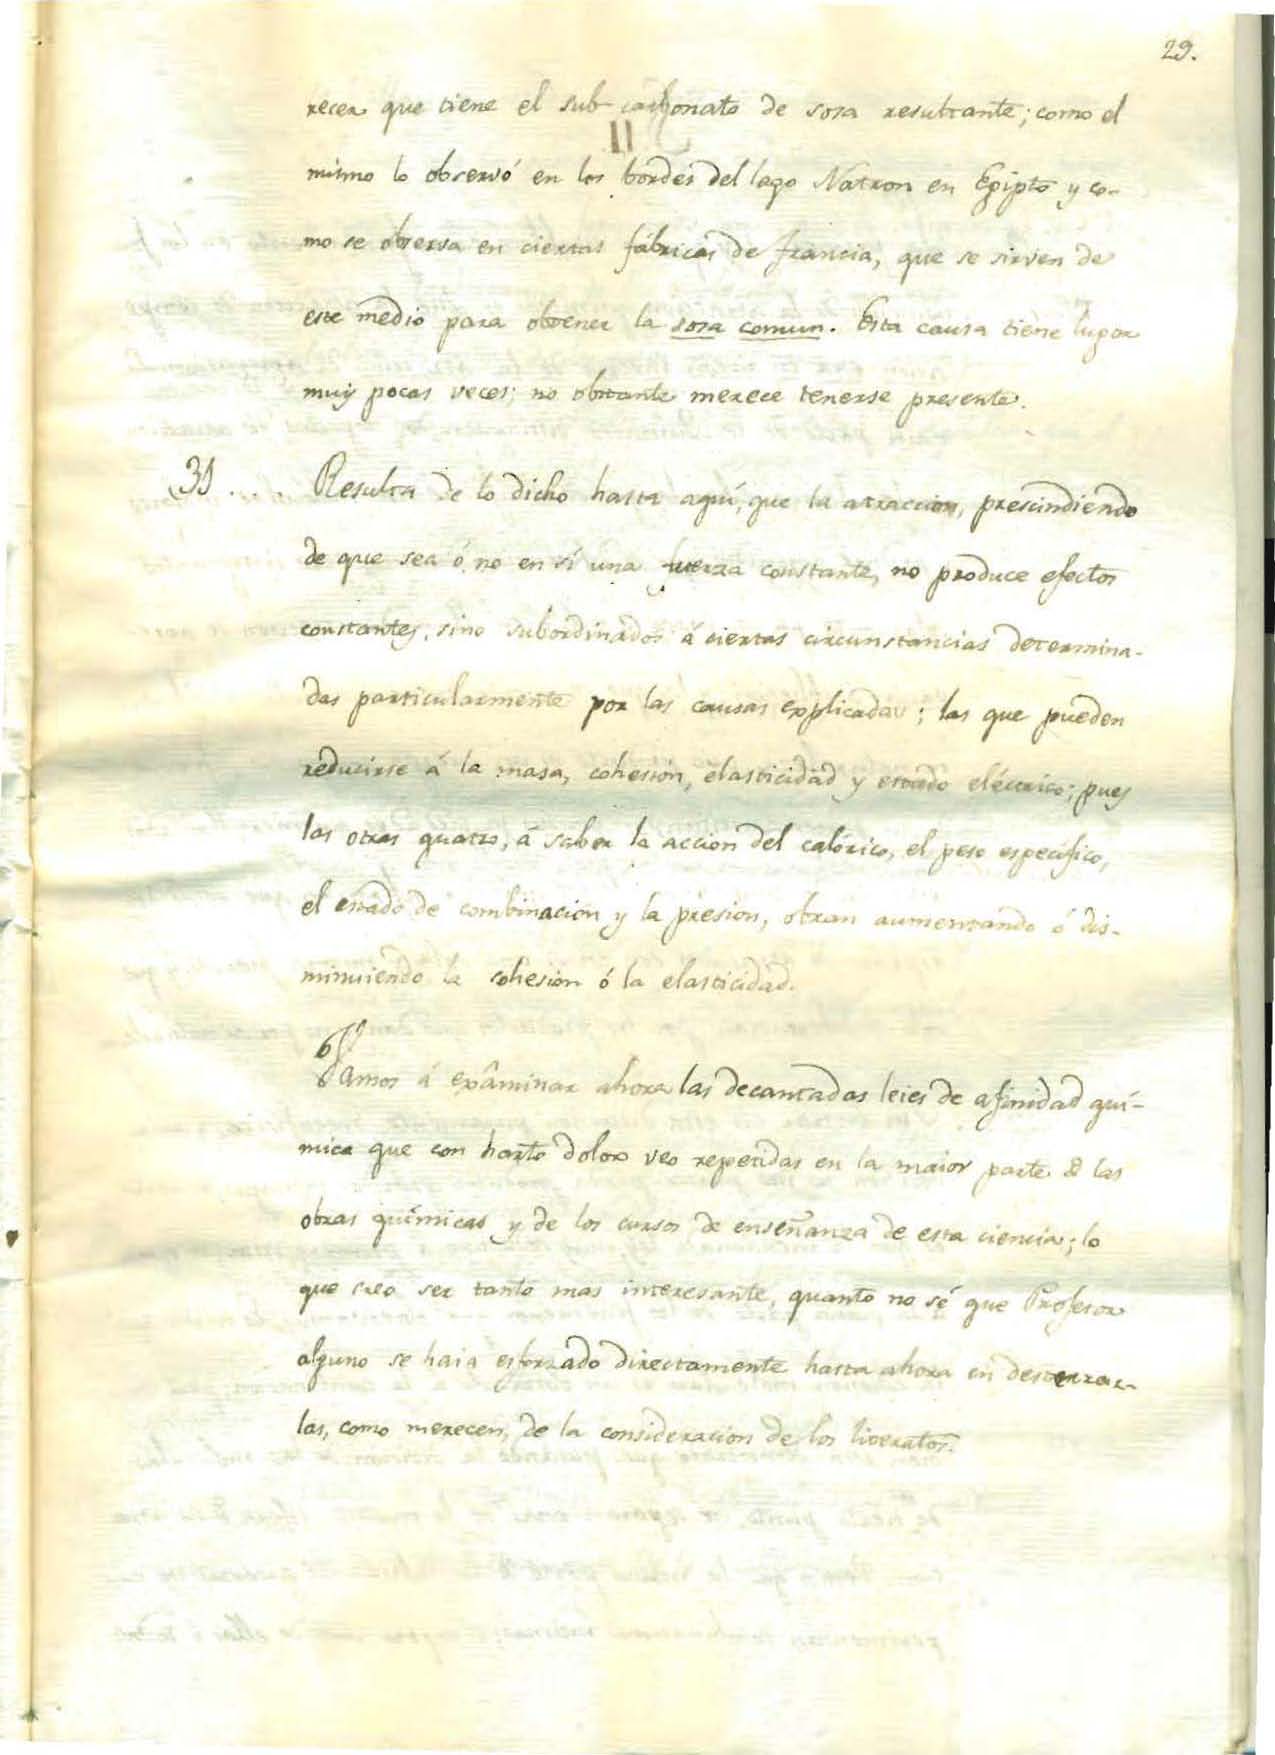 29.
recer que tiene el sub-carbonato de sosa resultante; como el
mismo lo observó en los bordes del lago Natron en Egipto y co-
mo se observa en ciertas fábricas de francia, que se sirven de
este medio para obtener la sosa comun. Esta causa tiene lugar
muy pocas veces; no obstante merece tenerse presente.
31.... Resulta de lo dicho hasta aquí, que la atraccion, prescindiendo
de que sea ó no en sí una fuerza constante, no produce efectos
constantes, sino subordinados á ciertas circunstancias determina-
das particularmente por las causas explicadas; las que pueden
reducirse á la masa, cohesion, elasticidad y estado eléctrico; pues
las otras quatro, á saber la accion del calórico, el peso específico,
el estado de combinacion y la presion, obran aumentando ó dis-
minuiendo la cohesion ó la elasticidad.
Vamos á exâminar ahora las decantadas leies de afinidad quí-
mica que con harto dolor veo repetidas en la maior parte de las
obras químicas y de los cursos de enseñanza de esta ciencia; lo
que creo ser tanto mas interesante, quanto no sé que Profesor
alguno se haia esforzado directamente hasta ahora en desterrar-
las, como merecen, de la consideracion de los literatos.